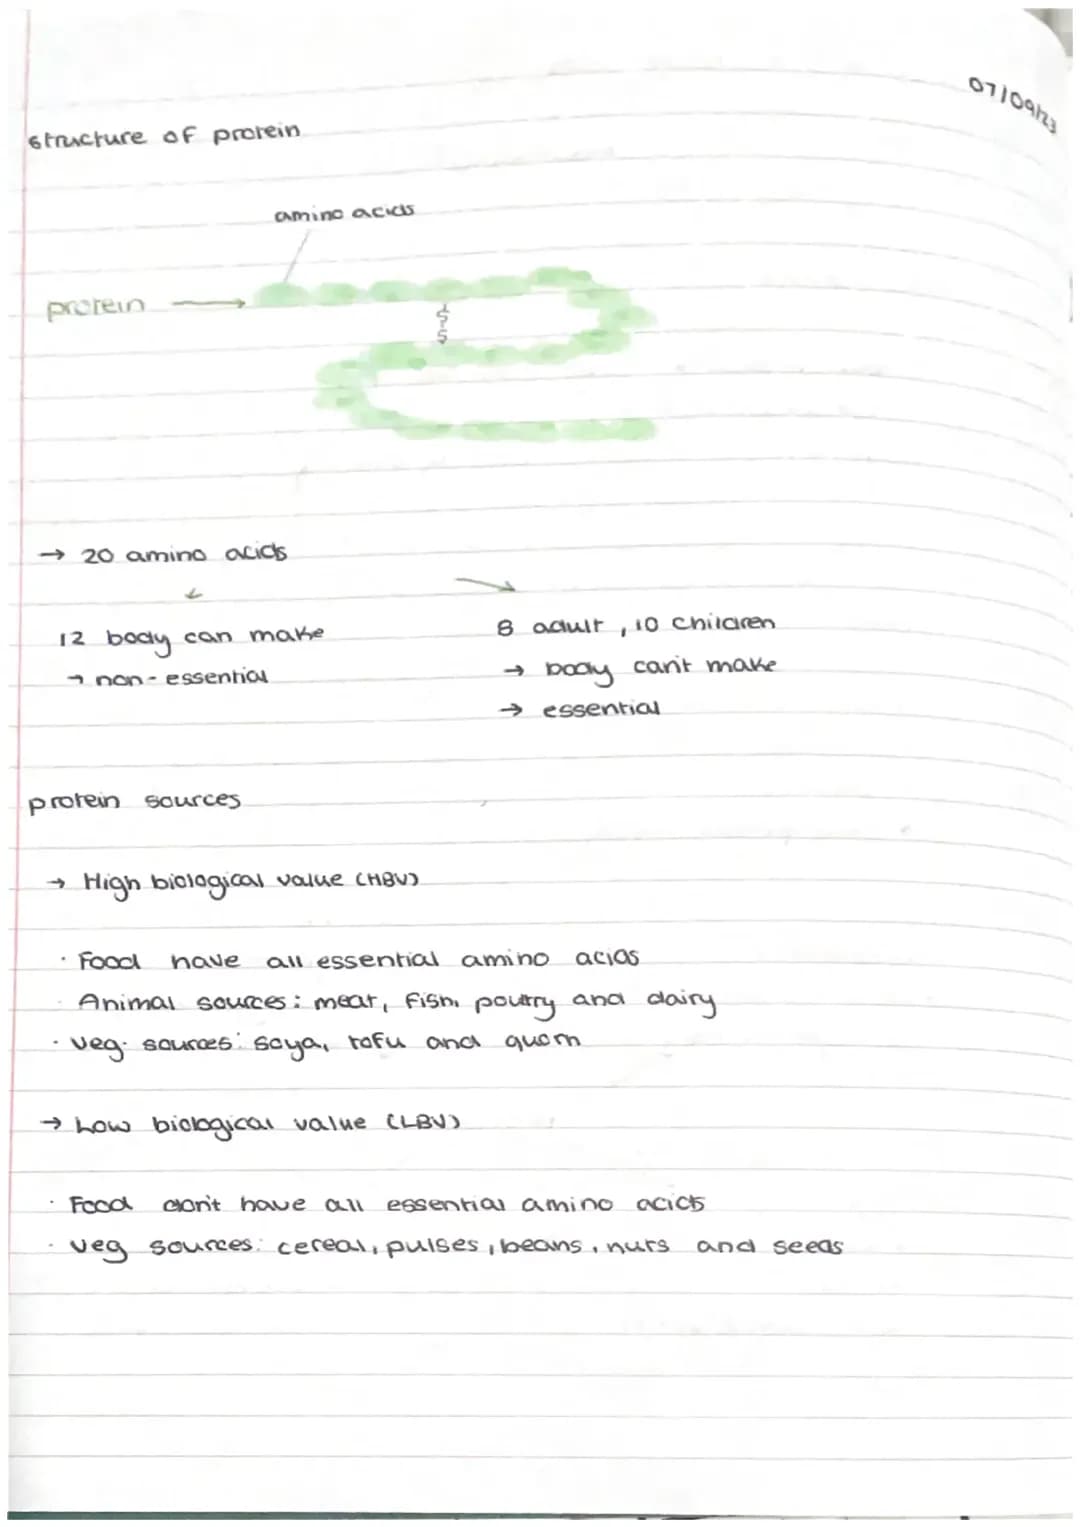 07/09/23
structure of protein
amino acids
protein →
S-S
→ 20 amino acids
↙ ↘
12 body can make
→ non-essential
8 adult, 10 children
→ body can't make
→ essential
protein sources
→ High biological value (HBV)
· Food have all essential amino acids
· Animal sources: meat, fish, poultry and dairy
· veg. sources: soya, tofu and quorn
→ Low biological value (LBV)
· Food don't have all essential amino acids
· veg sources: cereal, pulses, beans, nuts and seeds